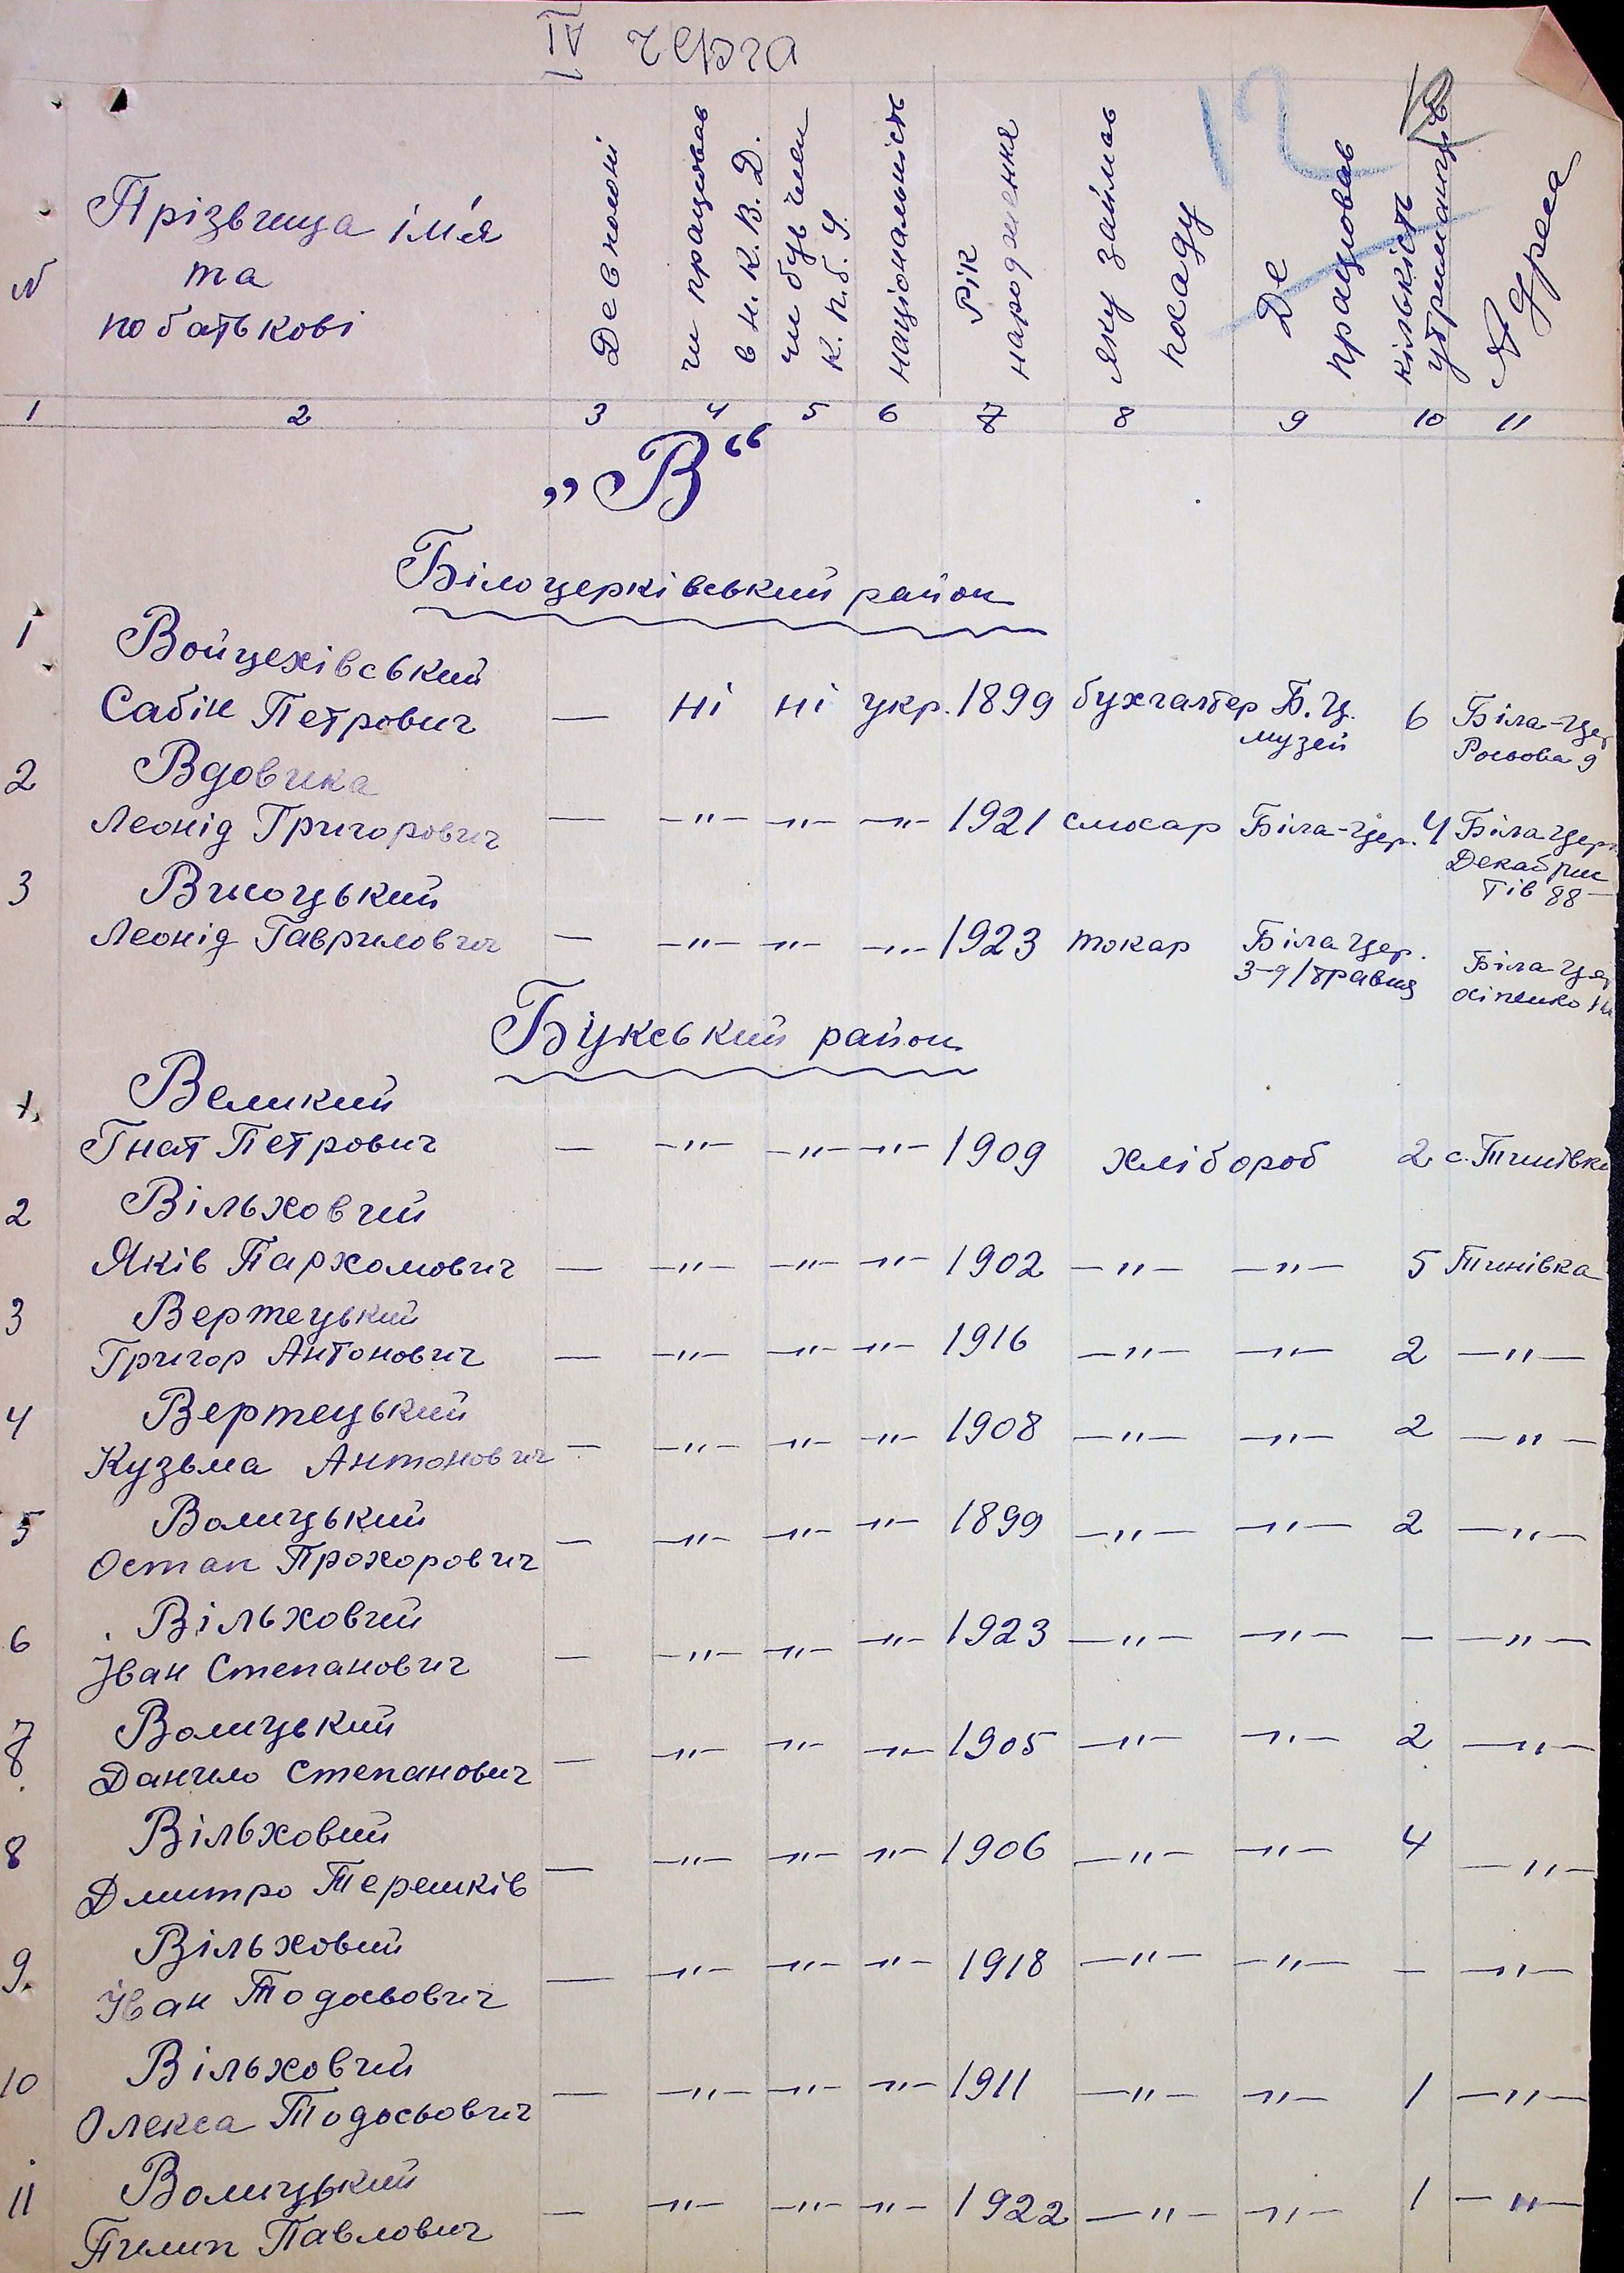 IV черга
12
№
Прізвища ім'я
та
по батькові
Де в полоні
чи працював
в Н.К.В.Д.
чи був член
К.П.б.У.
національність
Рік
народження
яку займав
посаду
Де
працював
кількість
утриманців
Адреса
1 2 3 4 5 6 7 8 9 10 11
„В“
Білоцерківський район
1 Войцехівський
Сабін Петрович — ні ні укр. 1899 бухгалтер Б.Ц. 6 Біла-Цер
музей Росьова 9
2 Вдовика
Леонід Григорович — —"— —"— —"— 1921 слюсар Біла-Цер. 4 Біла Церк
Декабрис
тів 88
3 Висоцький
Леонід Гаврилович — —"— —"— —"— 1923 токар Біла Цер. Біла Цер
З-д 1 травня Осіпенко
Букський район
1. Великий
Гнат Петрович — —"— —"— —"— 1909 хлібороб 2 с. Тинівка
2 Вільховий
Яків Пархомович — —"— —"— —"— 1902 —"— —"— 5 Тинівка
3 Вертецький
Григор Антонович — —"— —"— —"— 1916 —"— —"— 2 —"—
4 Вертецький
Кузьма Антонович — —"— —"— —"— 1908 —"— —"— 2 —"—
5 Волицький
Остап Прохорович — —"— —"— —"— 1899 —"— —"— 2 —"—
6 Вільховий
Іван Степанович — —"— —"— —"— 1923 —"— —"— — —"—
7 Волицький
Данило Степанович — —"— —"— —"— 1905 —"— —"— 2 —"—
8 Вільховий
Дмитро Терешків — —"— —"— —"— 1906 —"— —"— 4 —"—
9. Вільховий
Іван Тодосьович — —"— —"— —"— 1918 —"— —"— — —"—
10 Вільховий
Олекса Тодосьович — —"— —"— —"— 1911 —"— —"— 1 —"—
11 Волицький
Пилип Павлович — —"— —"— —"— 1922 —"— —"— 1 —"—